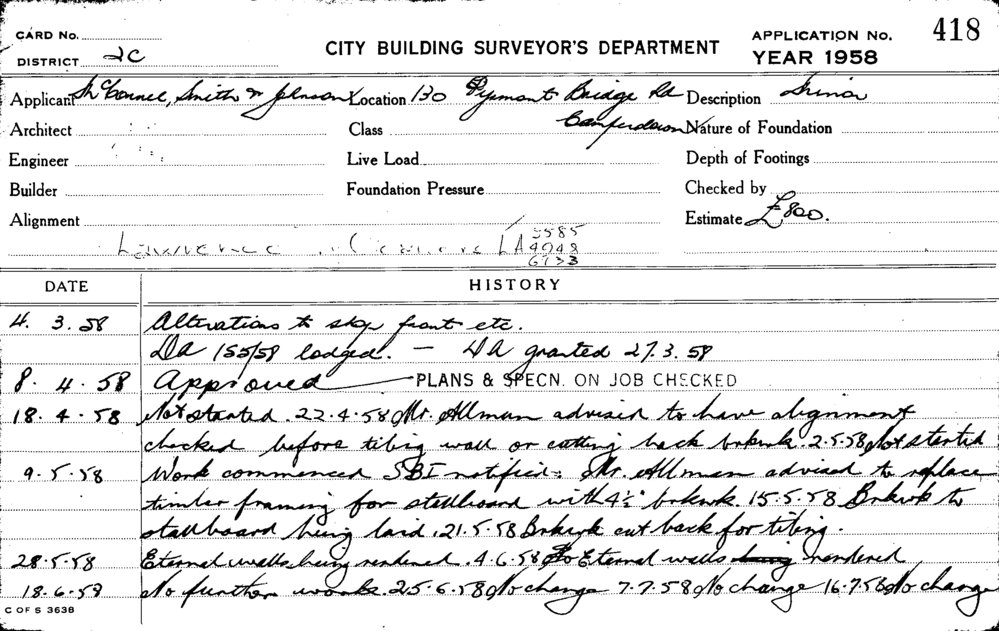 CARD No.
DISTRICT 2C
CITY BUILDING SURVEYOR'S DEPARTMENT
APPLICATION No. 418
YEAR 1958
Applicant McConnel, Smith & Johnson Location 130 Pyrmont Bridge Rd Camperdown Description Minor
Architect Class Nature of Foundation
Engineer Live Load Depth of Footings
Builder Foundation Pressure Checked by
Alignment Estimate £800.
Lawrence LA 4948
DATE HISTORY
4. 3. 58 Alterations to shop front etc.
DA 155/58 lodged. — DA granted 27.3.58
8. 4. 58 Approved PLANS & SPECN. ON JOB CHECKED
18. 4. 58 Not started. 22.4.58 Mr. Allman advised to have alignment
checked before tiling wall or cutting back brkwk. 2.5.58 Not started
9.5.58 Work commenced SBI notified. Mr. Allman advised to replace
timber framing for stallboard with 4½" brkwk. 15.5.58 Brkwk to
stallboard being laid. 21.5.58 Brkwk cut back for tiling.
28.5.58 External walls being rendered. 4.6.58 External walls being rendered
18.6.58 No further work. 25.6.58 No change 7.7.58 No change 16.7.58 No change
C OF S 3638